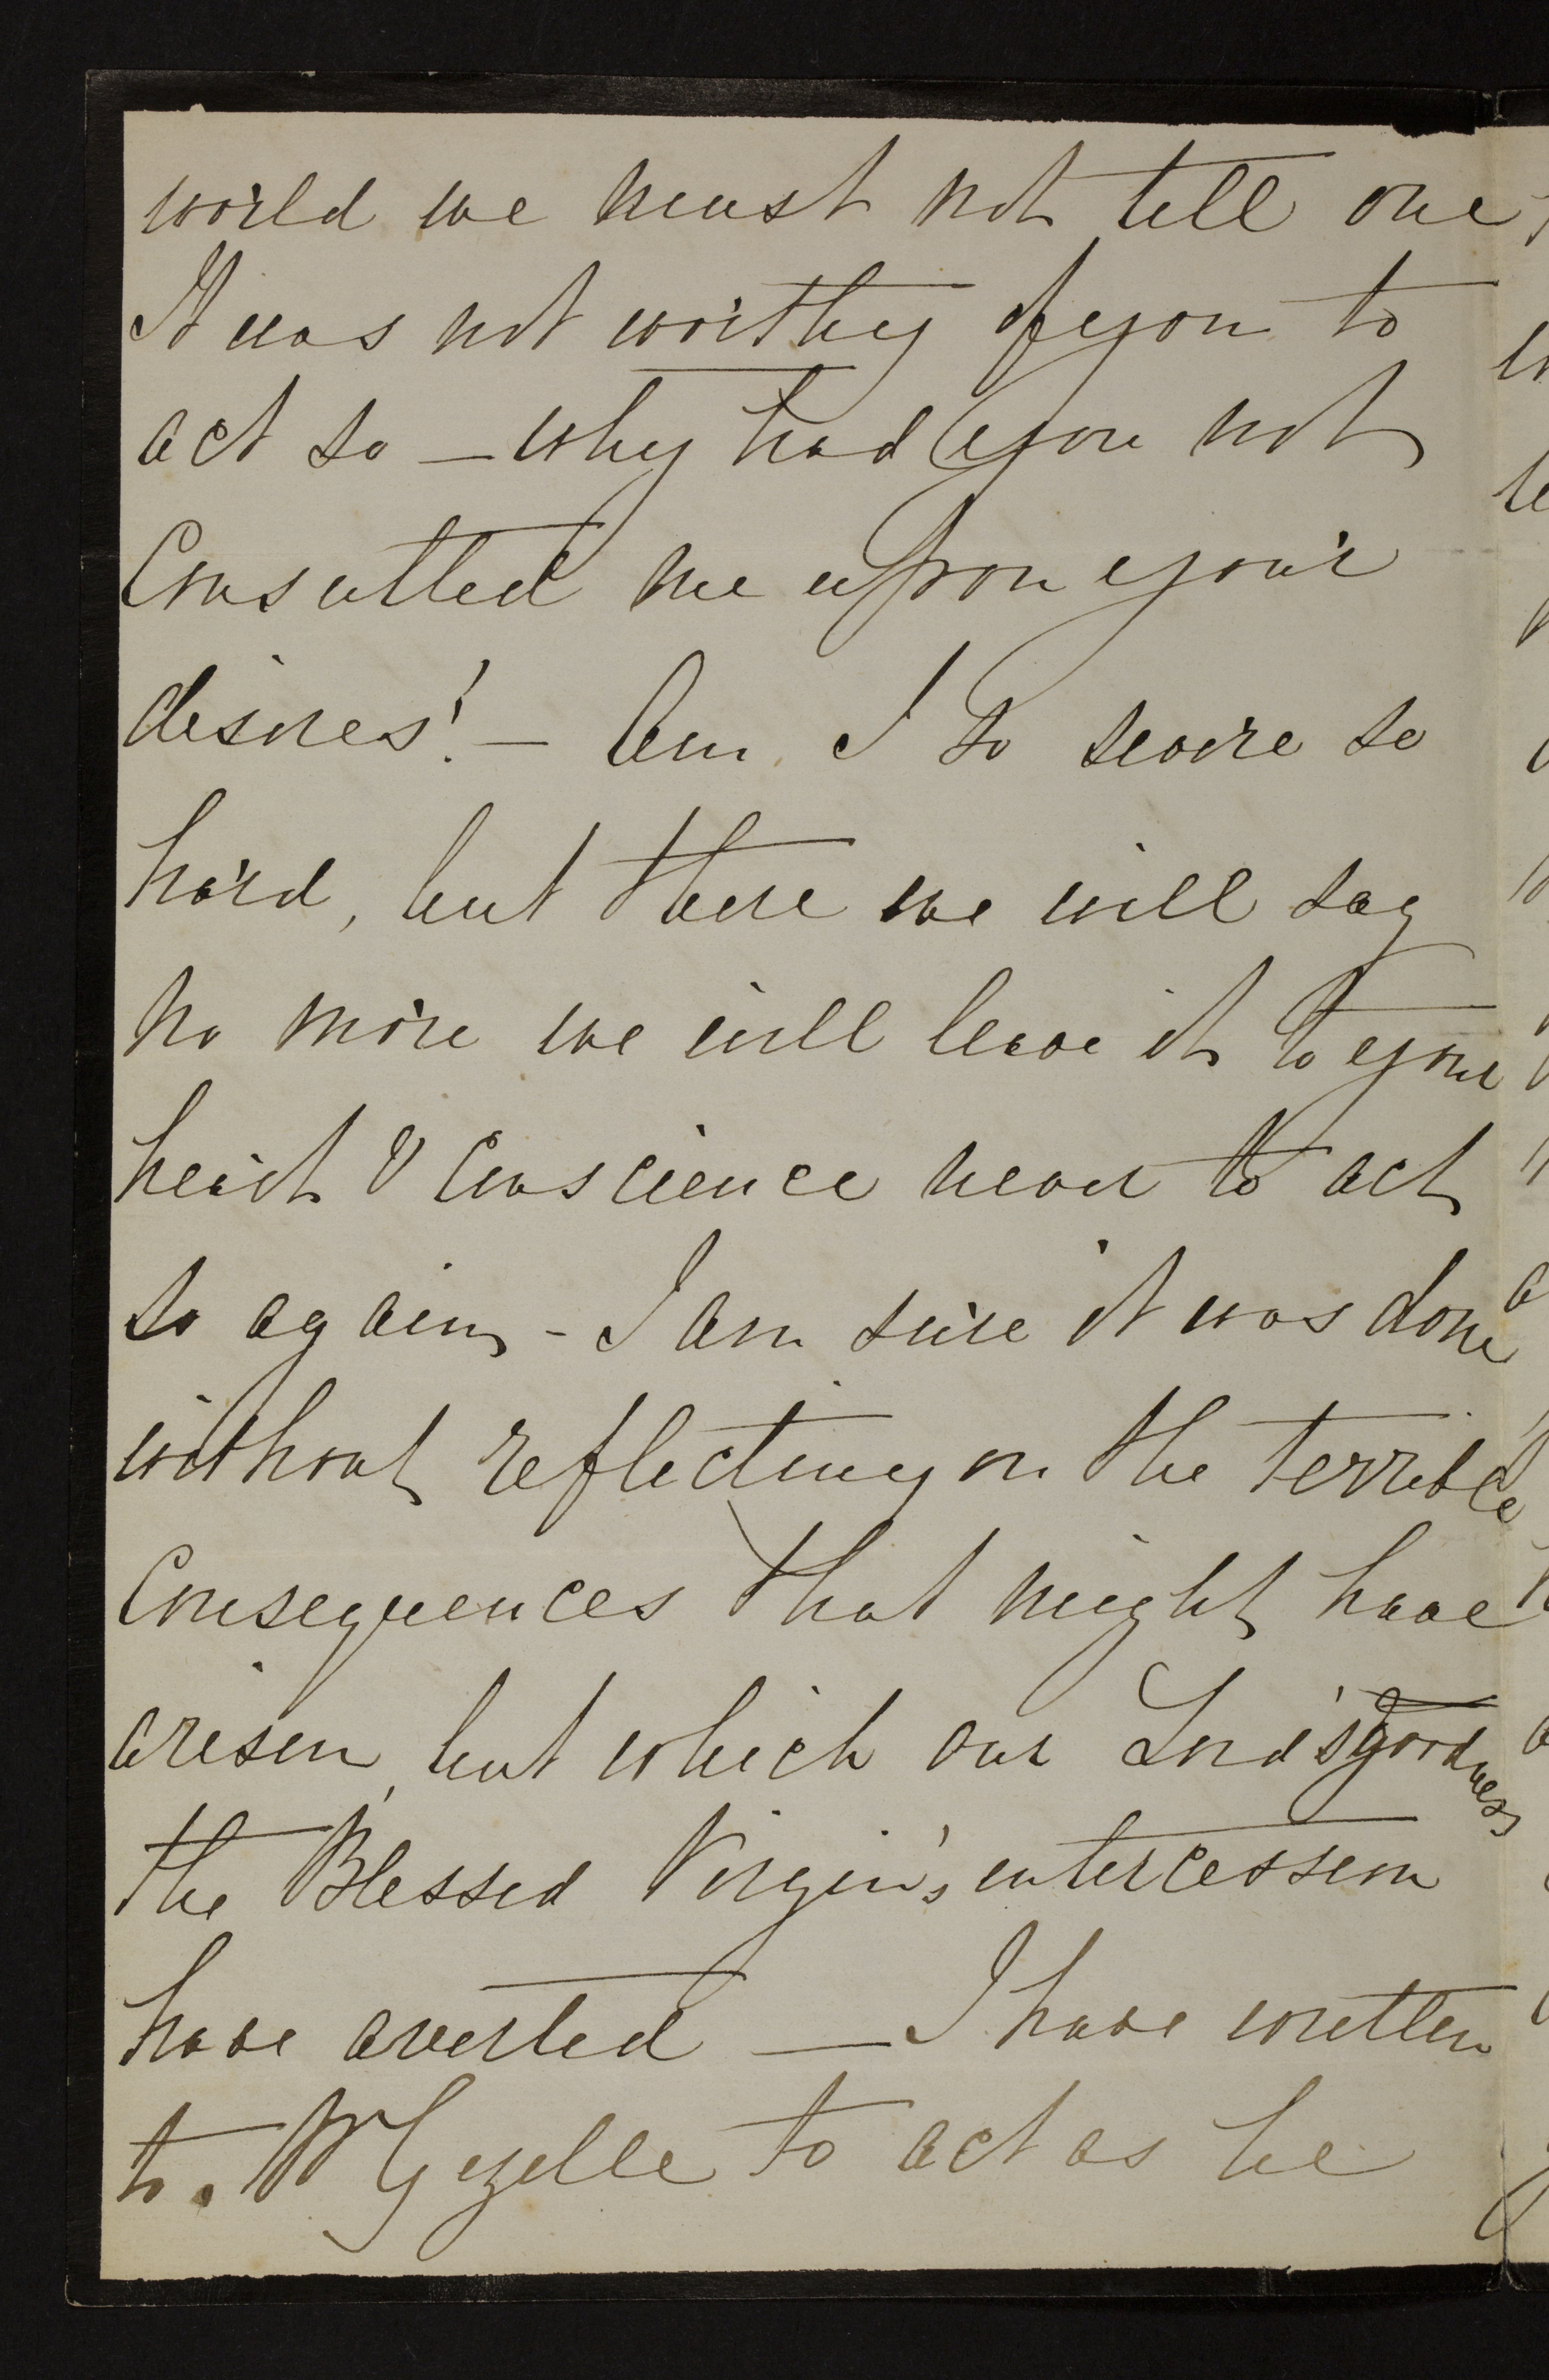 world we must not tell one,
It was not worthy of you to
act so – why had you not
Consulted me upon your
desires! – Am I so severe so
hard, but there we will say
no more we will leave it to your
heart & Conscience never to act
so again – I am sure it was done
without reflecting on the terrible
Consequences that might have
arisen, but which our Lord's goodness
the Blessed Virgin's intercession
have averted — I have written
to. Mr Gezelle to act as he